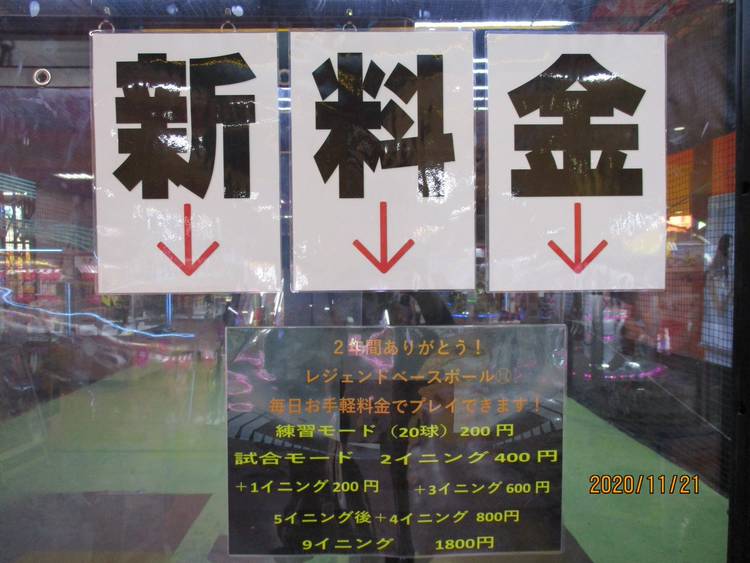 新 料 金
2年間ありがとう!
レジェンドベースボール
毎日お手軽料金でプレイできます!
練習モード(20球)200円
試合モード 2イニング400円
+1イニング200円 +3イニング600円
5イニング後+4イニング 800円
9イニング 1800円
2020/11/21